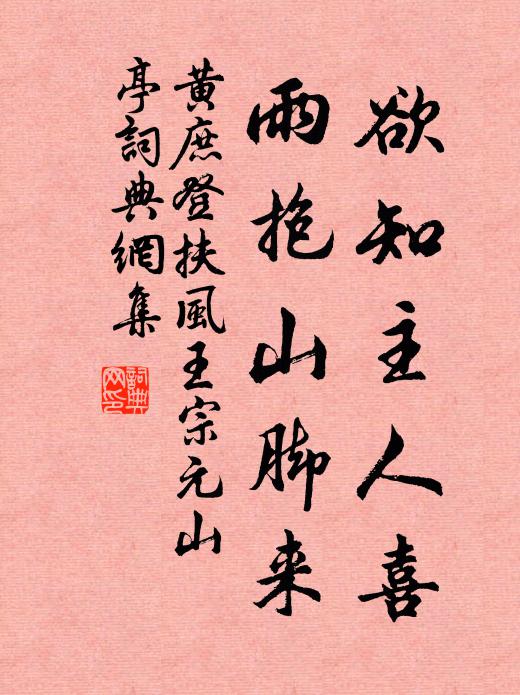 欲知主人喜
雨抱山脚来
黄庶登扶風王宗元山
亭詞典網集
詞典
网印